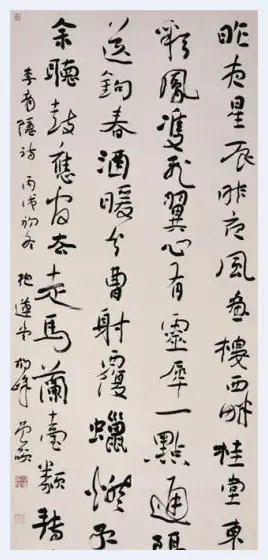 昨夜星辰昨夜風畫樓西畔桂堂東
彩鳳雙飛翼心有靈犀一點通隔
送鉤春酒暖分曹射覆蠟燈
余聽鼓應官去走馬蘭臺類轉
李商隱詩 丙戌初冬